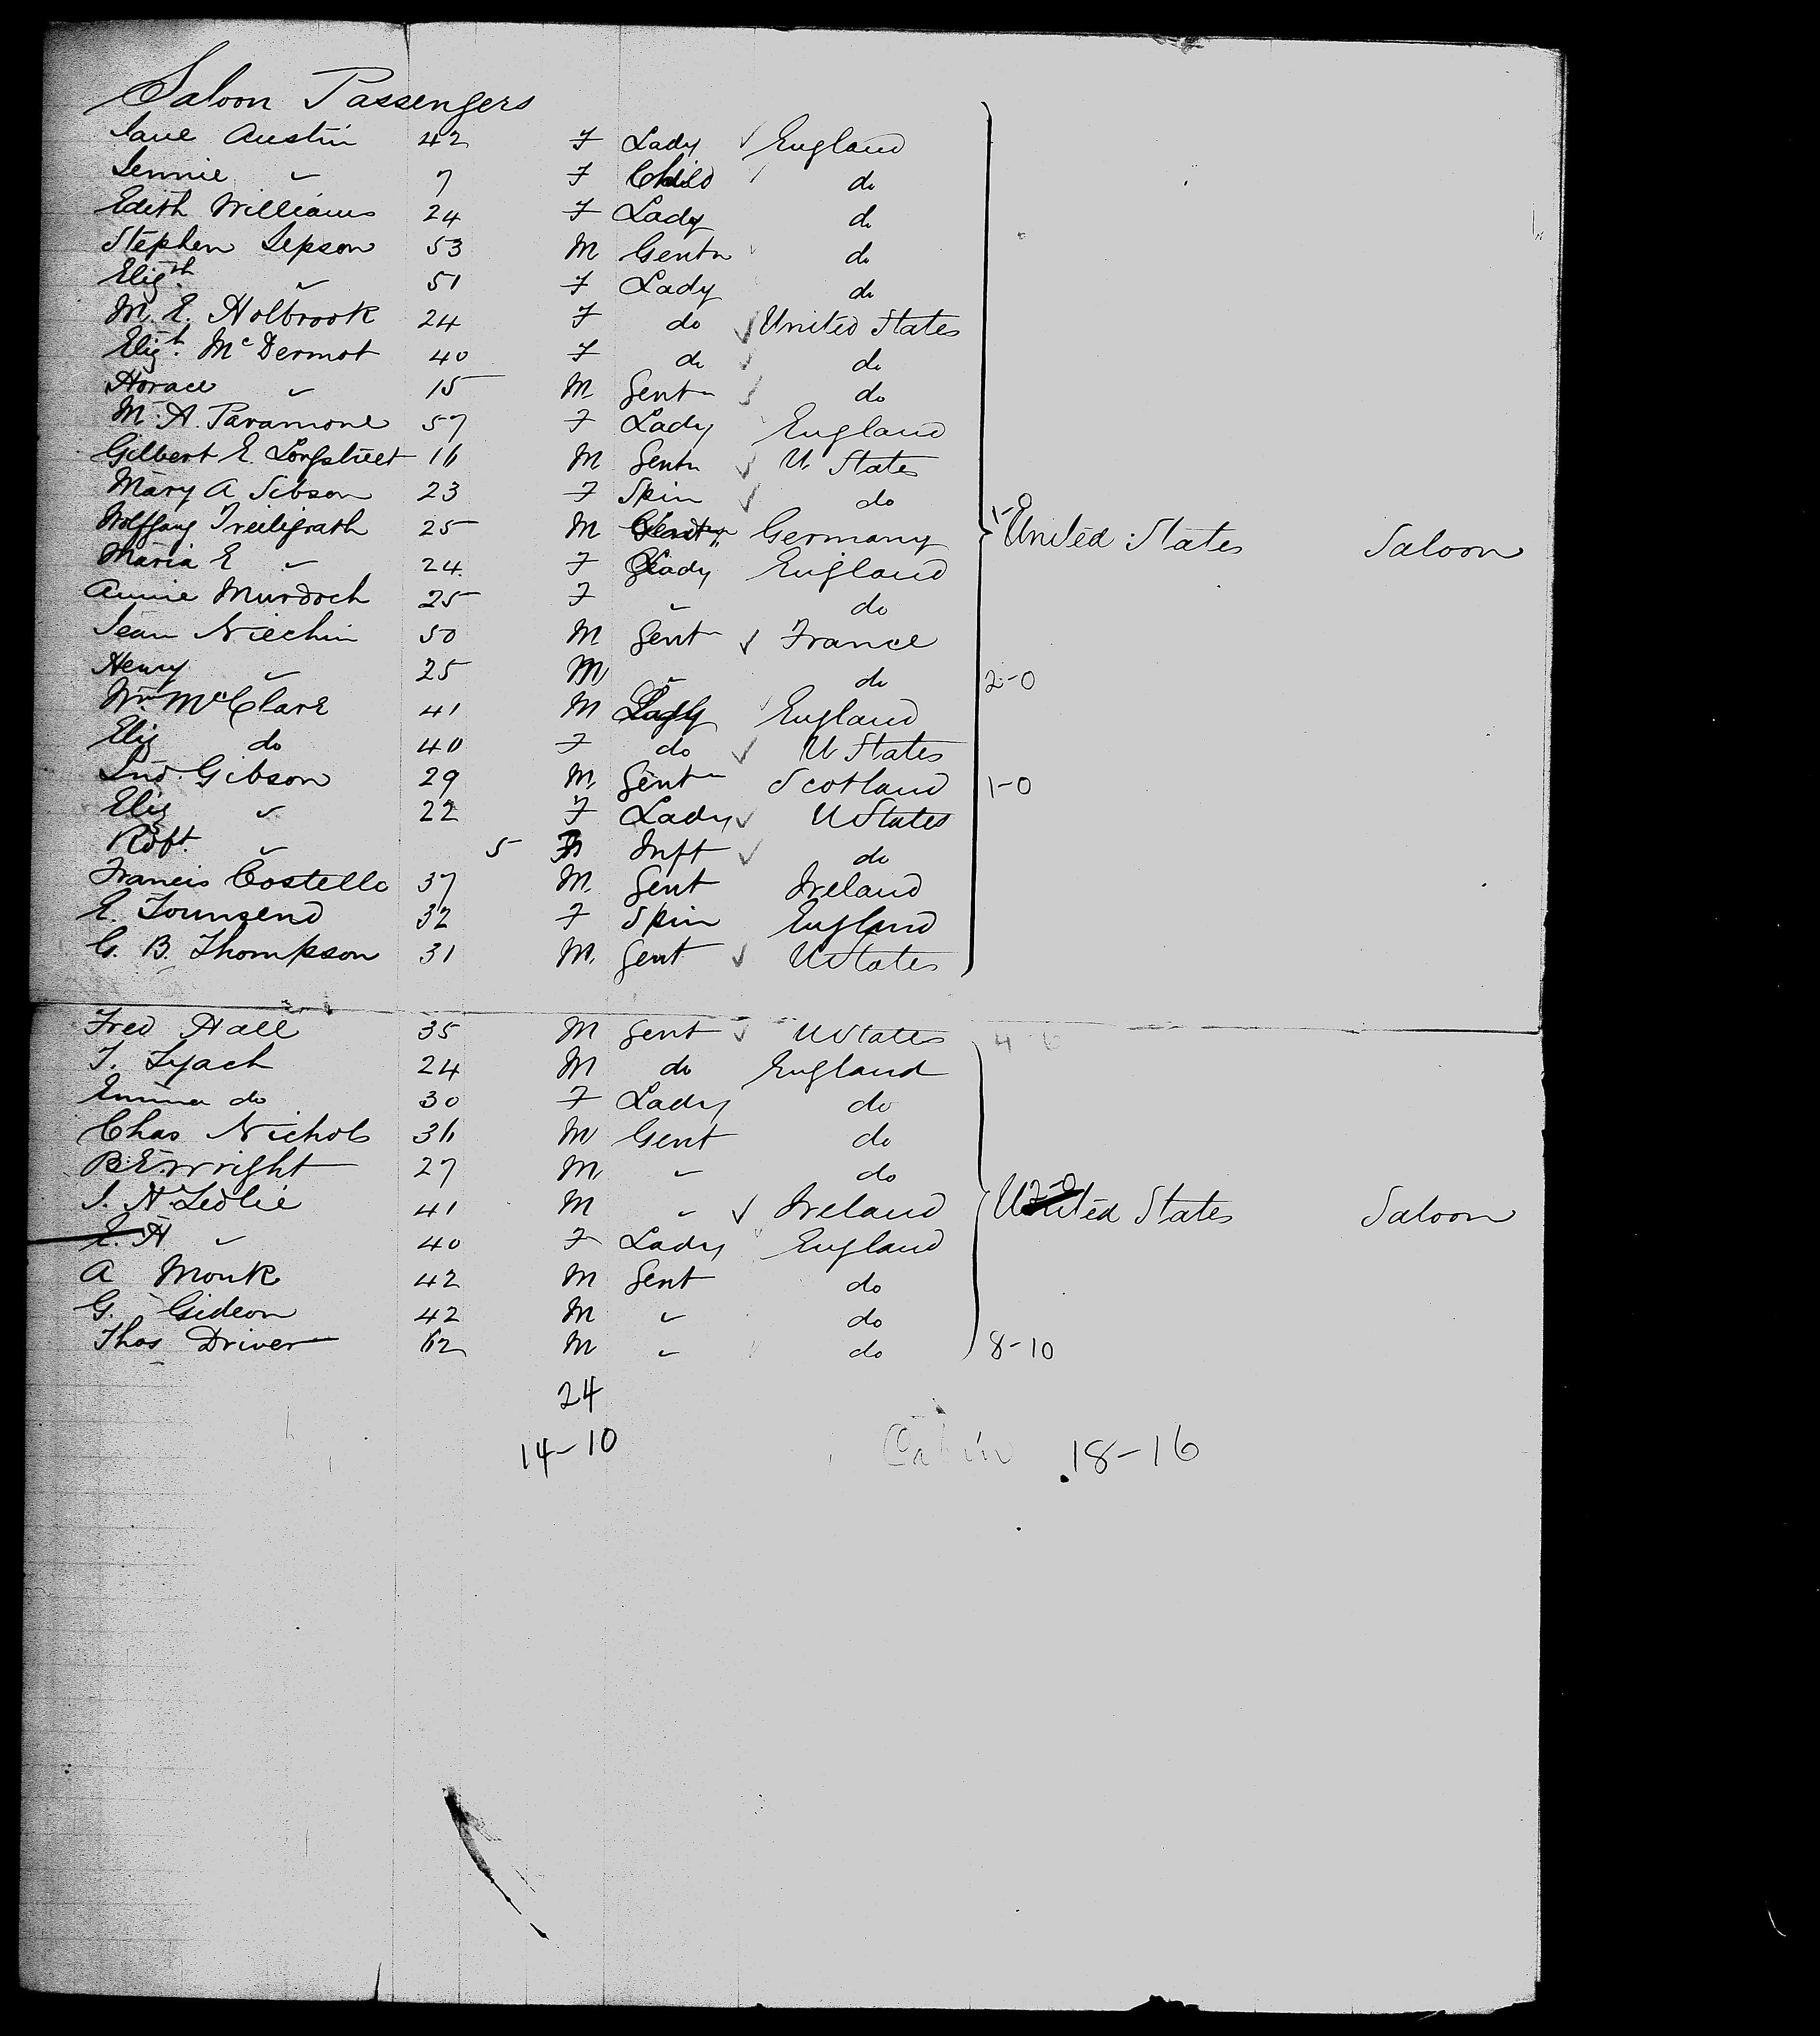 Saloon Passengers
Jane Austin 42 F Lady ✓ England
Jennie " 7 F Child do
Edith Williams 24 F Lady do
Stephen Jepson 53 M Gentn do
Elizth " 51 F Lady do
M. E. Holbrook 24 F do ✓ United States
Elizt. McDermot 40 F do ✓ do
Horace " 15 M Gentn ✓ do
M. A. Paramore 57 F Lady England
Gilbert E. Longstreet 16 M Gentn ✓ U States
Mary A Jibson 23 F Spin ✓ do
Wolffgang Freiligrath 25 M Gentn Germany 1-0 United States Saloon
Maria E " 24 F Lady England
Annie Murdoch 25 F " do
Jean Niechin 50 M Gentn ✓ France
Henry " 25 M " do 2-0
Wm McClare 41 M England
Eliz do 40 F do ✓ U States
Jno. Gibson 29 M Gentn Scotland 1-0
Eliz " 22 F Lady ✓ U States
Robt. " 5 M Inft ✓ do
Francis Costello 37 M Gent Ireland
E. Townsend 32 F Spin England
G. B. Thompson 31 M. Gent ✓ U States
Fred Hall 35 M Gent ✓ U States
T. Lyach 24 M do England
Emma do 30 F Lady do
Chas Nichols 36 M Gent do
B. E. Wright 27 M " do
J. H. Ledlie 41 M " ✓ Ireland United States Saloon
E. H " 40 F Lady England
A Monk 42 M Gent do
G. Gideon 42 M " do
Thos Driver 62 M " do 8-10
24
14-10 Cabin 18-16